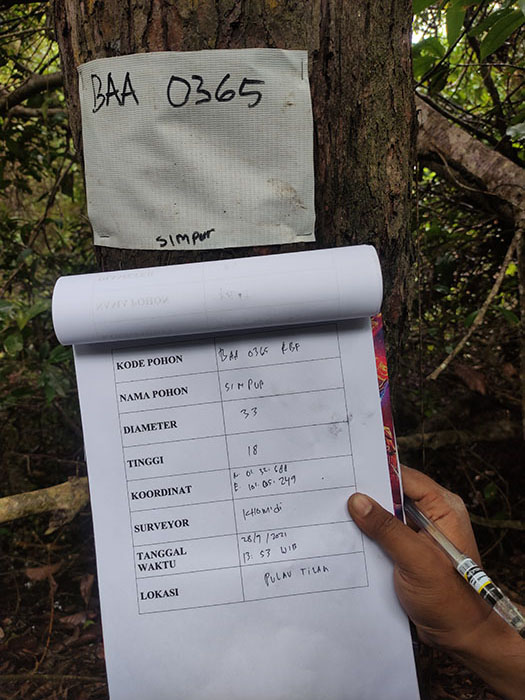 BAA 0365
SIMPUR
KODE POHON BAA 0365 RBF
NAMA POHON SIMPUR
DIAMETER 33
TINGGI 18
KOORDINAT N: 01. 32. 688
E: 101. 05. 249
SURVEYOR KHOMIDI
TANGGAL 28/9/2021
WAKTU 13:53 WIB
LOKASI PULAU TILAN